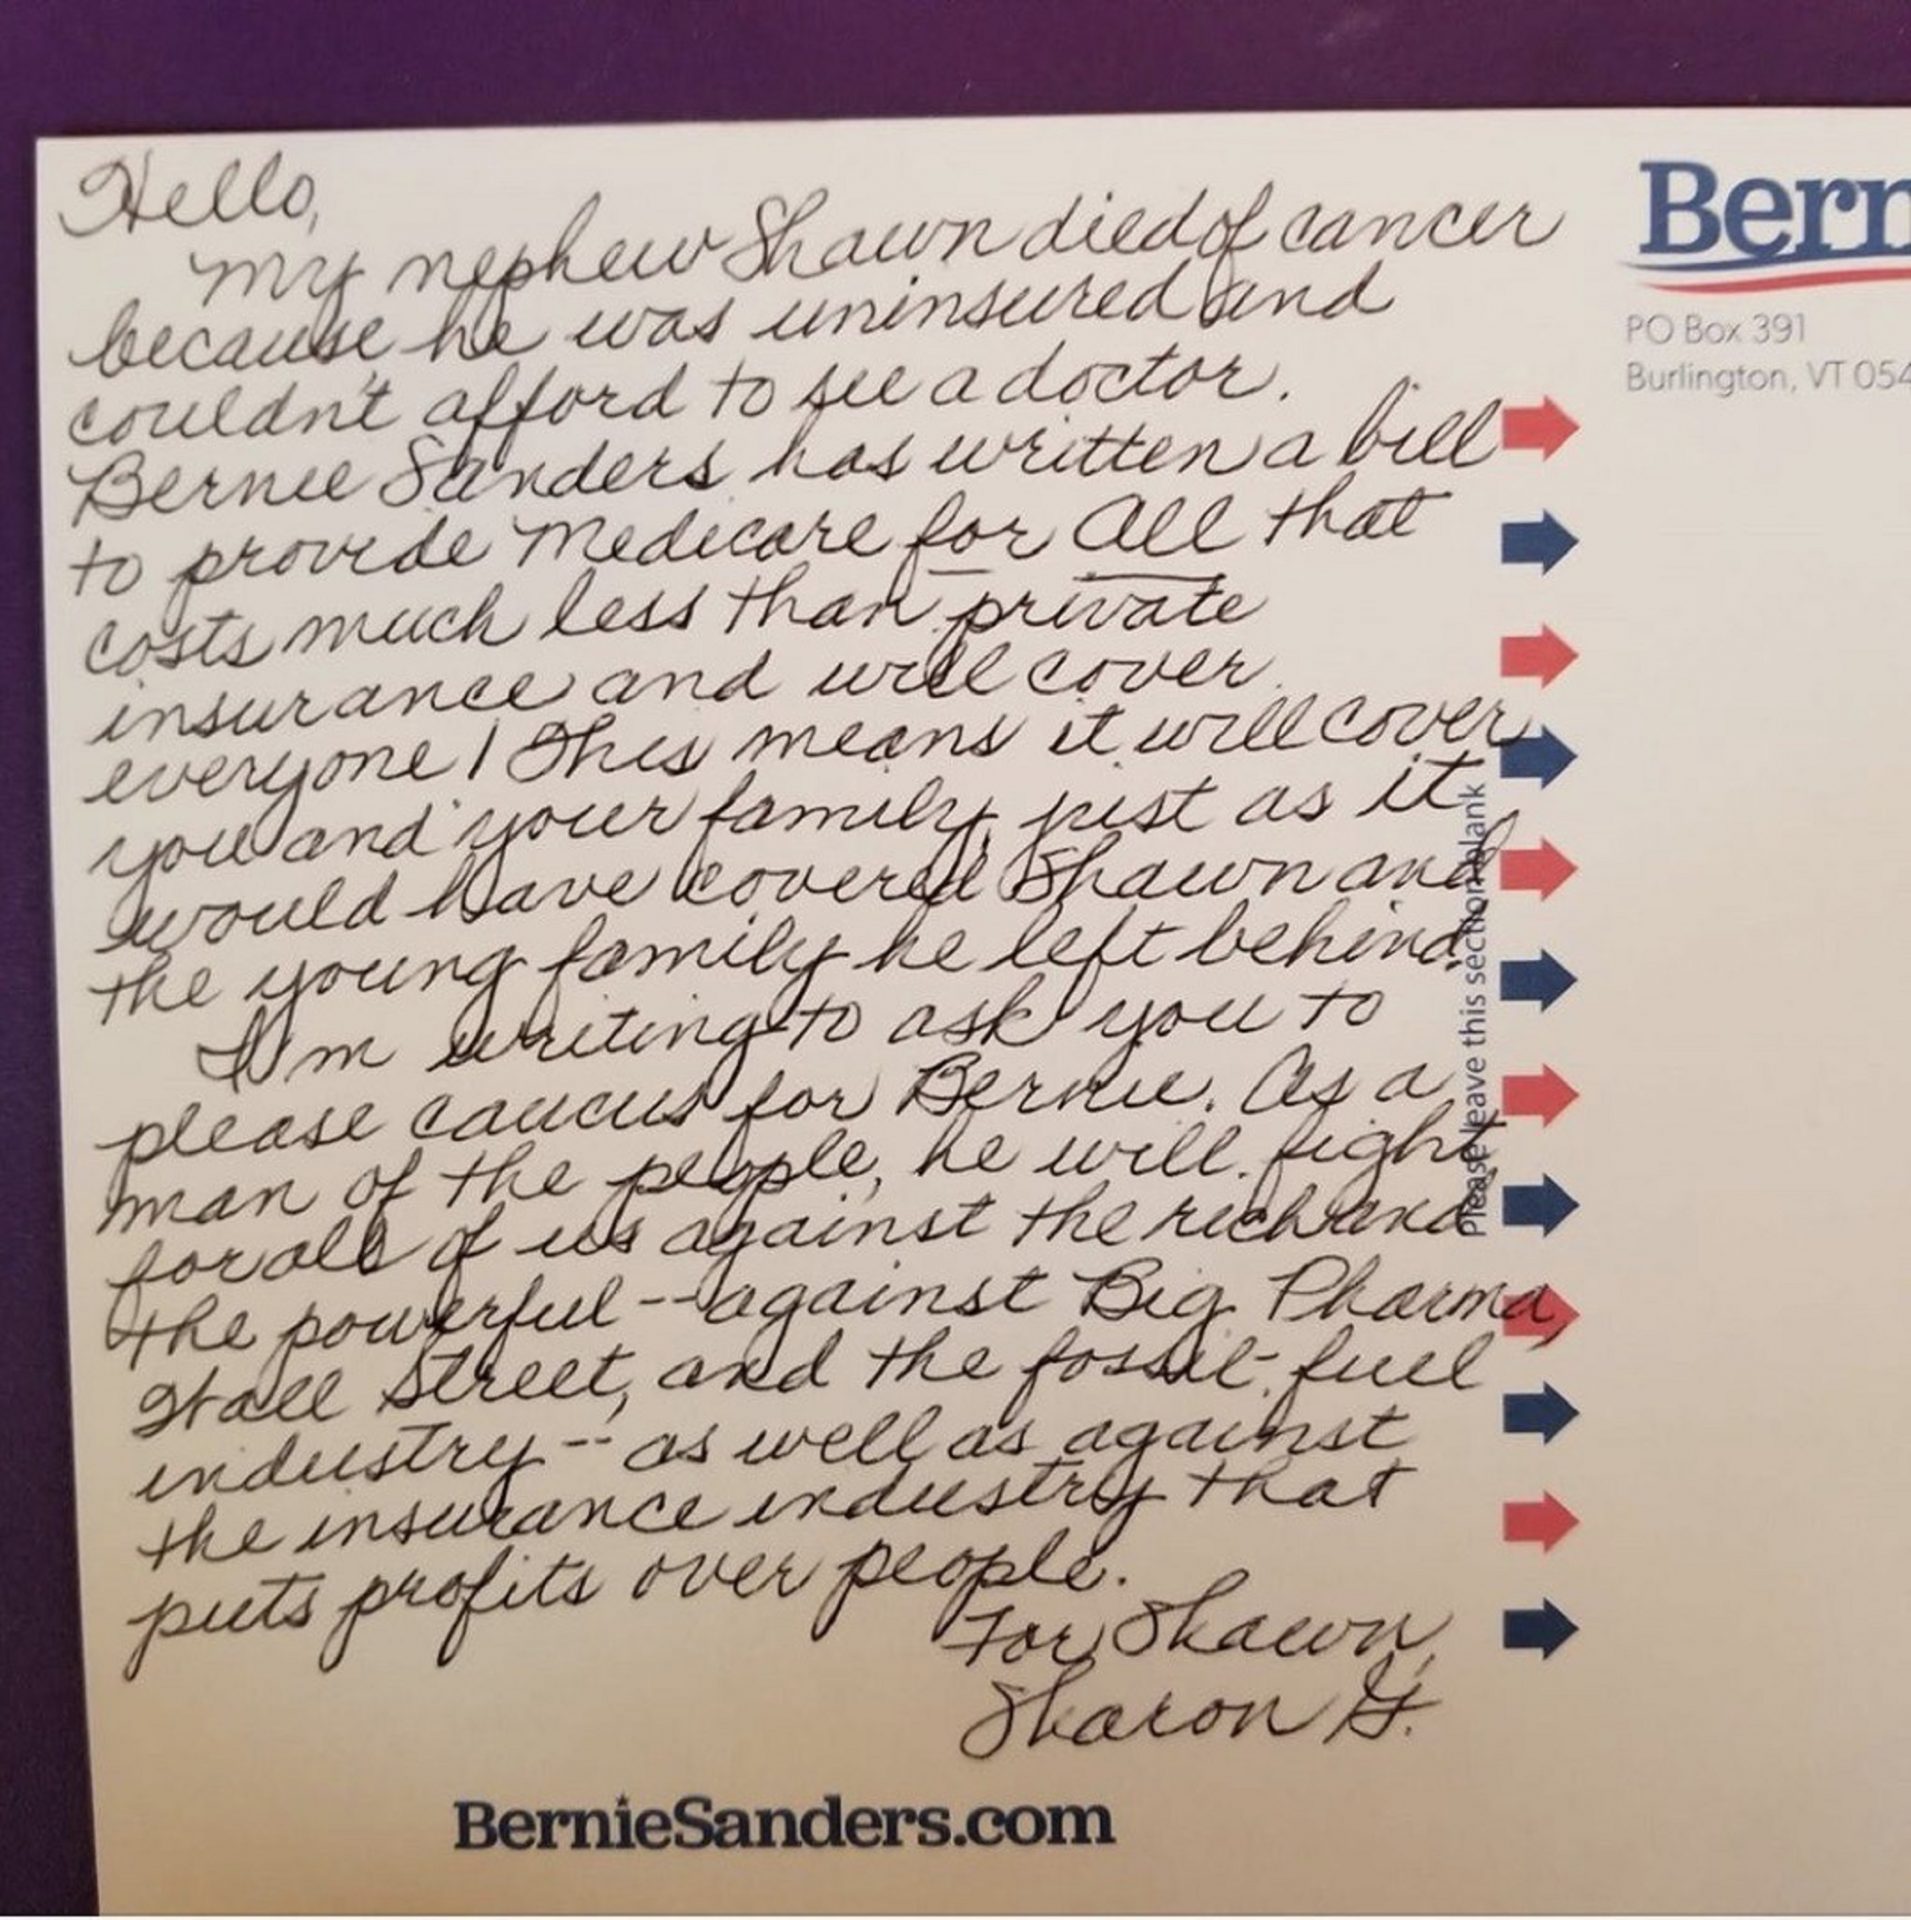 Hello,
My nephew Shawn died of cancer
because he was uninsured and
couldn't afford to see a doctor.
Bernie Sanders has written a bill
to provide Medicare for All that
costs much less than private
insurance and will cover
everyone! This means it will cover
you and your family, just as it
would have covered Shawn and
the young family he left behind.
I'm writing to ask you to
please caucus for Bernie. As a
man of the people, he will fight
for all of us against the rich and
the powerful -- against Big Pharma,
Wall Street, and the fossil-fuel
industry -- as well as against
the insurance industry that
puts profits over people.
For Shawn,
Sharon G.
BernieSanders.com
Please leave this section blank
Bern
PO Box 391
Burlington, VT 054